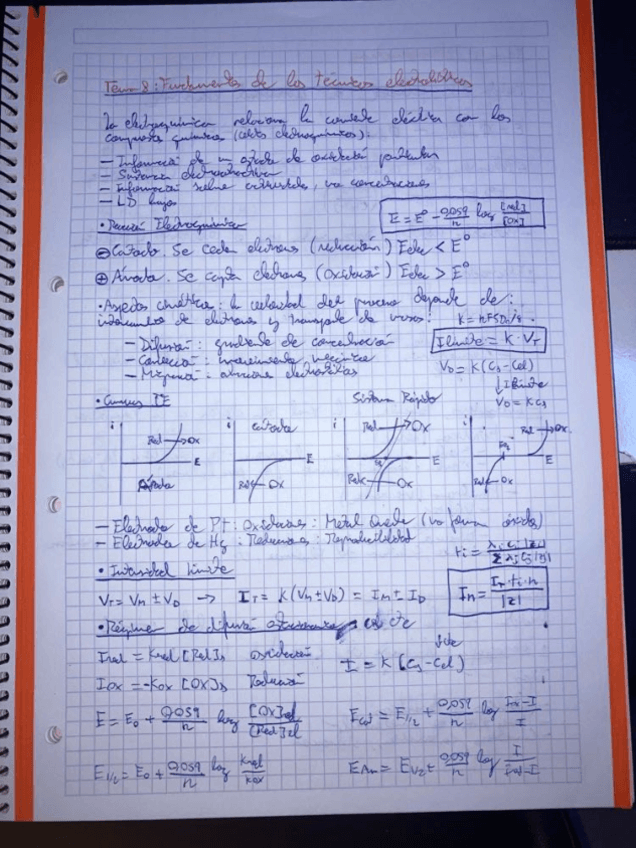 Tema 8: Fundamentos de las técnicas electrolíticas
La electroquímica relaciona la corriente eléctrica con los
compuestos químicos (celdas electroquímicas):
— Información de un estado de oxidación
— Sustancia electroactiva
— Información sobre actividades, no concentraciones
— LD bajos
E = E° - 0,059/n log [red]/[Ox]
• Reacción Electroquímica
⊖ Cátodo. Se ceden electrones (reducción) Eelec < E°
⊕ Ánodo. Se capta electrones (oxidación) Eelec > E°
• Aspectos cinéticos: la velocidad del proceso depende de:
intercambio de electrones y transporte de masa:
— Difusión: gradiente de concentración
I límite = K · VT
— Convección: movimiento mecánico
— Migración:
VD = K(Cs - Cel)
↓ I límite
VD = K Cs
• Curvas IE
Sistema Rápido
i Red → Ox E Ánodo
i Cátodo E Red ← Ox
i Red → Ox Eq E Red ← Ox
i Red → Ox Eq E Red ← Ox
— Electrodo de Pt: Oxidaciones: Metal (no forma óxidos)
— Electrodo de Hg: Reducciones: Reproducibilidad
• Intensidad límite
VT = Vm ± VD → IT = K(Vm ± VD) = Im ± ID
Im = IT · ti · n / |z|
• Régimen de difusión cte
I = K (Cs - Cel)
Ired = Kred [Red]s oxidación
Iox = -Kox [OX]s Reducción
E = E0 + 0,059/n log [Ox]el/[Red]el
Ecat = E1/2 + 0,059/n log
E1/2 = E0 + 0,059/n log Kred/Kox
EAn = E1/2 + 0,059/n log